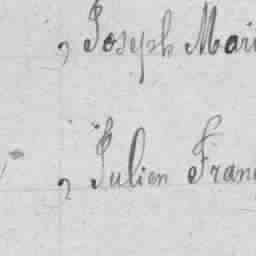 , Joseph Mari
, Julien Fran